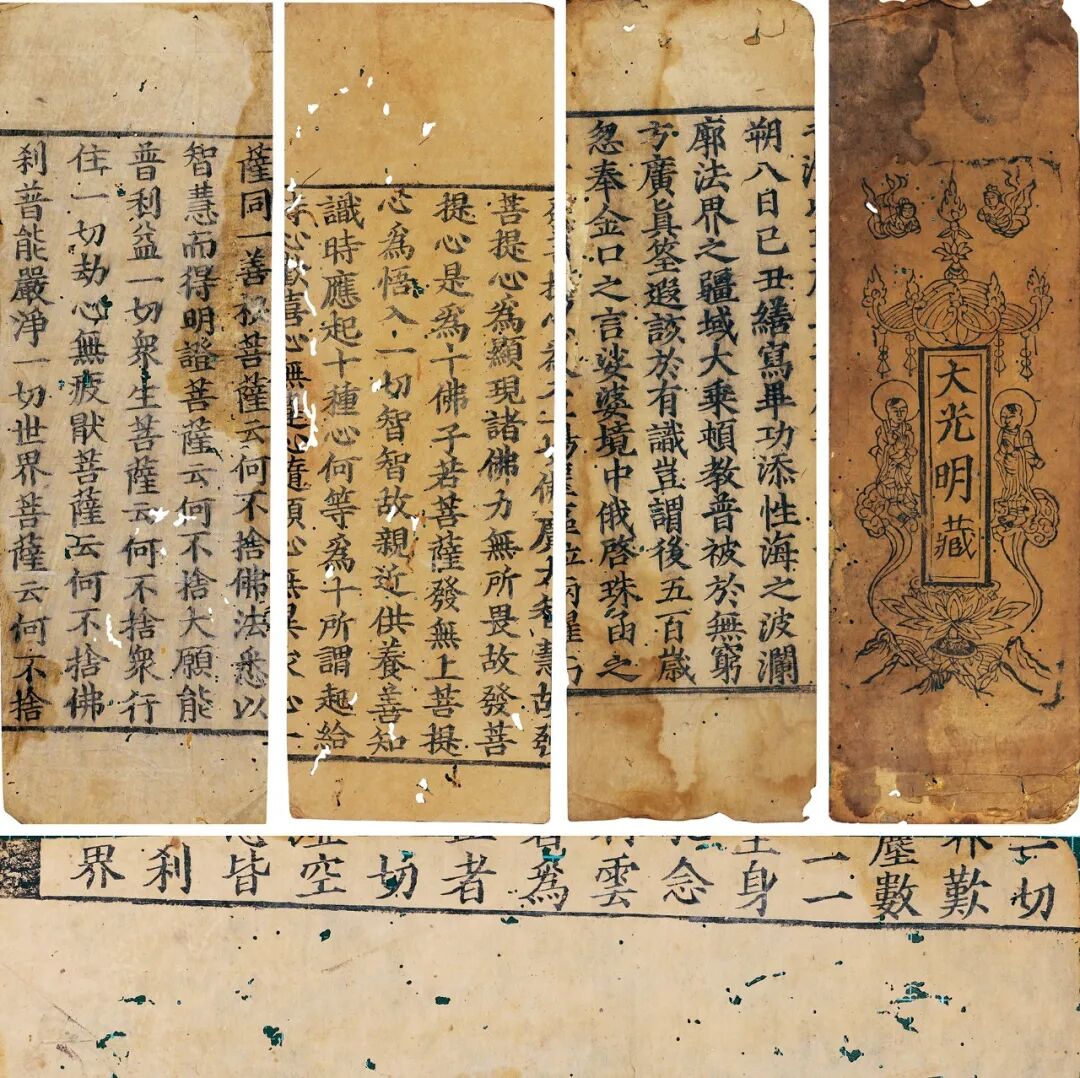 大光明藏
朔八日己丑繕寫畢功添性海之波瀾
廓法界之疆域大乘頓教普被於無窮
方廣眞筌遐該於有識豈謂後五百歲
忽奉金口之言娑婆境中俄啓珠函之
菩提心為顯現諸佛力無所畏故發菩
提心是為十佛子若菩薩發無上菩提
心為悟入一切智智故親近供養善知
識時應起十種心何等為十所謂起給
薩同一善根菩薩云何不捨佛法悉以
智慧而得明證菩薩云何不捨大願能
普利益一切衆生菩薩云何不捨衆行
住一切劫心無疲厭菩薩云何不捨佛
刹普能嚴淨一切世界菩薩云何不捨
切
歎
塵數
一一
身
念
雲
為
者
切
空
皆
刹
界